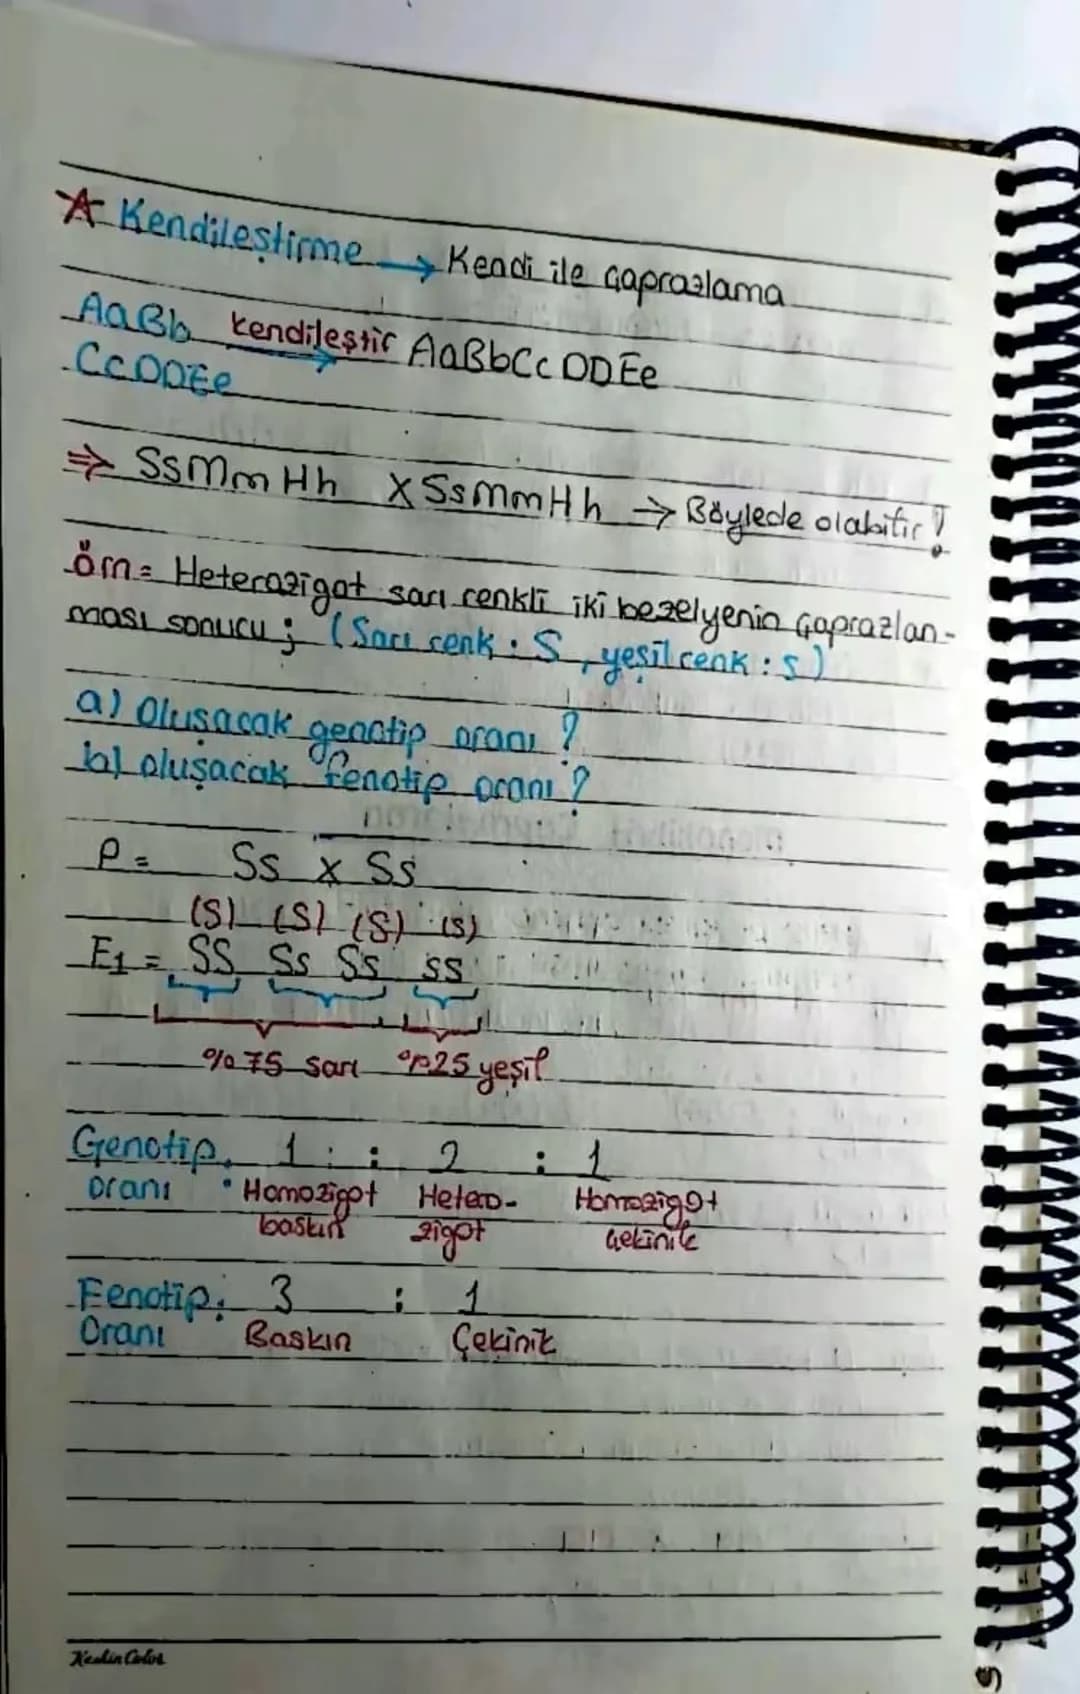 Kendileştirme → Kendi ile çaprazlama
AaBb kendileştir AaBbCcDDEe
CcDDEe
⇒ SsMmHh X SsMmHh → Böylede olabilir!
örn= Heterazigot sarı renkli iki bezelyenin çaprazlan-
ması sonucu; (Sarı renk : S, yeşil renk : s)
a) Oluşacak genotip oranı ?
b) oluşacak fenotip oranı ?
P = Ss x Ss
(S) (S) (S) (s)
F1 = SS Ss Ss ss
%75 sarı %25 yeşil
Genotip. 1 : 2 : 1
oranı Homozigot Hetero- Homozigot
baskın zigot çekinik
Fenotip: 3 : 1
Oranı Baskın Çekinik
Keskin Color